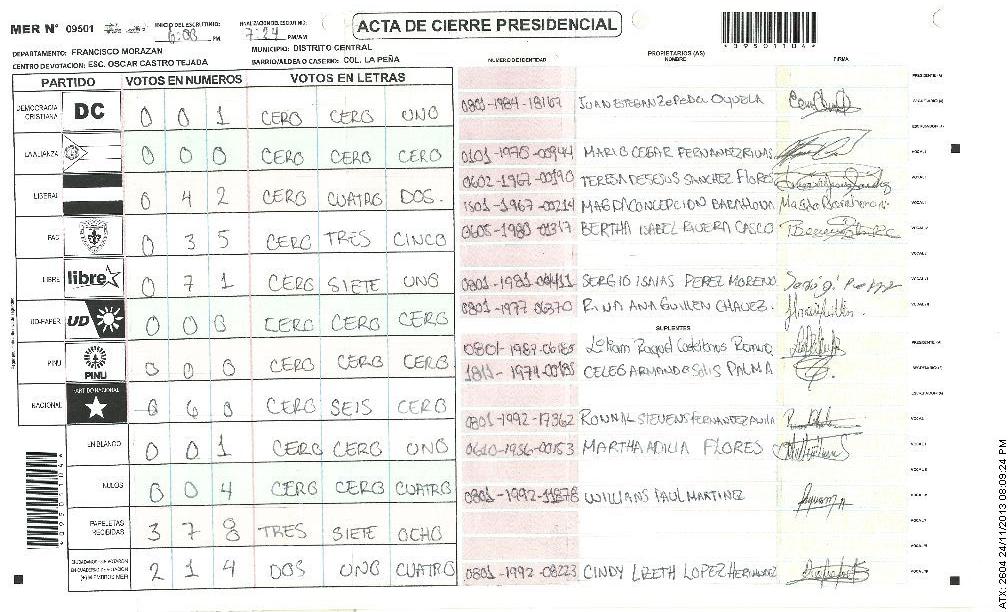 ACTA DE CIERRE PRESIDENCIAL
MER N° 09501 INICIO DEL ESCRUTINIO: 6:00 PM FINALIZACION DE ESCRUTINIO: 7:24 PM/AM
*09501104*
DEPARTAMENTO: FRANCISCO MORAZAN MUNICIPIO: DISTRITO CENTRAL
CENTRO DE VOTACION: ESC. OSCAR CASTRO TEJADA BARRIO/ALDEA O CASERIO: COL. LA PEÑA
PARTIDO VOTOS EN NUMEROS VOTOS EN LETRAS
DEMOCRACIA CRISTIANA DC 0 0 1 CERO CERO UNO
LA ALIANZA 0 0 0 CERO CERO CERO
LIBERAL 0 4 2 CERO CUATRO DOS.
PAC 0 3 5 CERO TRES CINCO
LIBRE libre 0 7 1 CERO SIETE UNO
UD-FAPER UD 0 0 0 CERO CERO CERO
PINU PINU 0 0 0 CERO CERO CERO
NACIONAL PARTIDO NACIONAL 0 6 0 CERO SEIS CERO
EN BLANCO 0 0 1 CERO CERO UNO
NULOS 0 0 4 CERO CERO CUATRO
PAPELETAS RECIBIDAS 3 7 8 TRES SIETE OCHO
CIUDADANOS QUE VOTARON EN CUADERNO DE VOTACION (+) MIEMBROS MER 2 1 4 DOS UNO CUATRO
NUMERO DE IDENTIDAD PROPIETARIOS (AS) NOMBRE FIRMA
PRESIDENTE (A)
0801-1984-18167 JUAN ESTEBAN ZEPEDA OYUELA SECRETARIO (A)
ESCRUTADOR (A)
0101-1978-00944 MARIO CESAR FERNANDEZ RIVAS VOCAL I
0602-1967-00190 TERESA DE JESUS SANCHEZ FLORES
1501-1967-00214 MAGDA CONCEPCION BARAHONA
0605-1980-01317 BERTHA ISABEL RIVERA CASCO
0801-1981-09411 SERGIO ISAIAS PEREZ MORENO
0801-1977-06370 RINA ANA GUILLEN CHAVEZ.
SUPLENTES
0801-1987-06185 PRESIDENTE (A)
CELEO ARMANDO SOLIS PALMA SECRETARIO (A)
ESCRUTADOR (A)
0801-1992-17362 RONNAL STEVENS FERNANDEZ AVILA
0610-1956-00153 MARTHA ADILIA FLORES
0801-1992-11878 WILLIANS PAUL MARTINEZ
0801-1992-08223 CINDY LIZETH LOPEZ HERNANDEZ
*09501104*
ATX: 2604 24/11/2013 08:09:24 PM